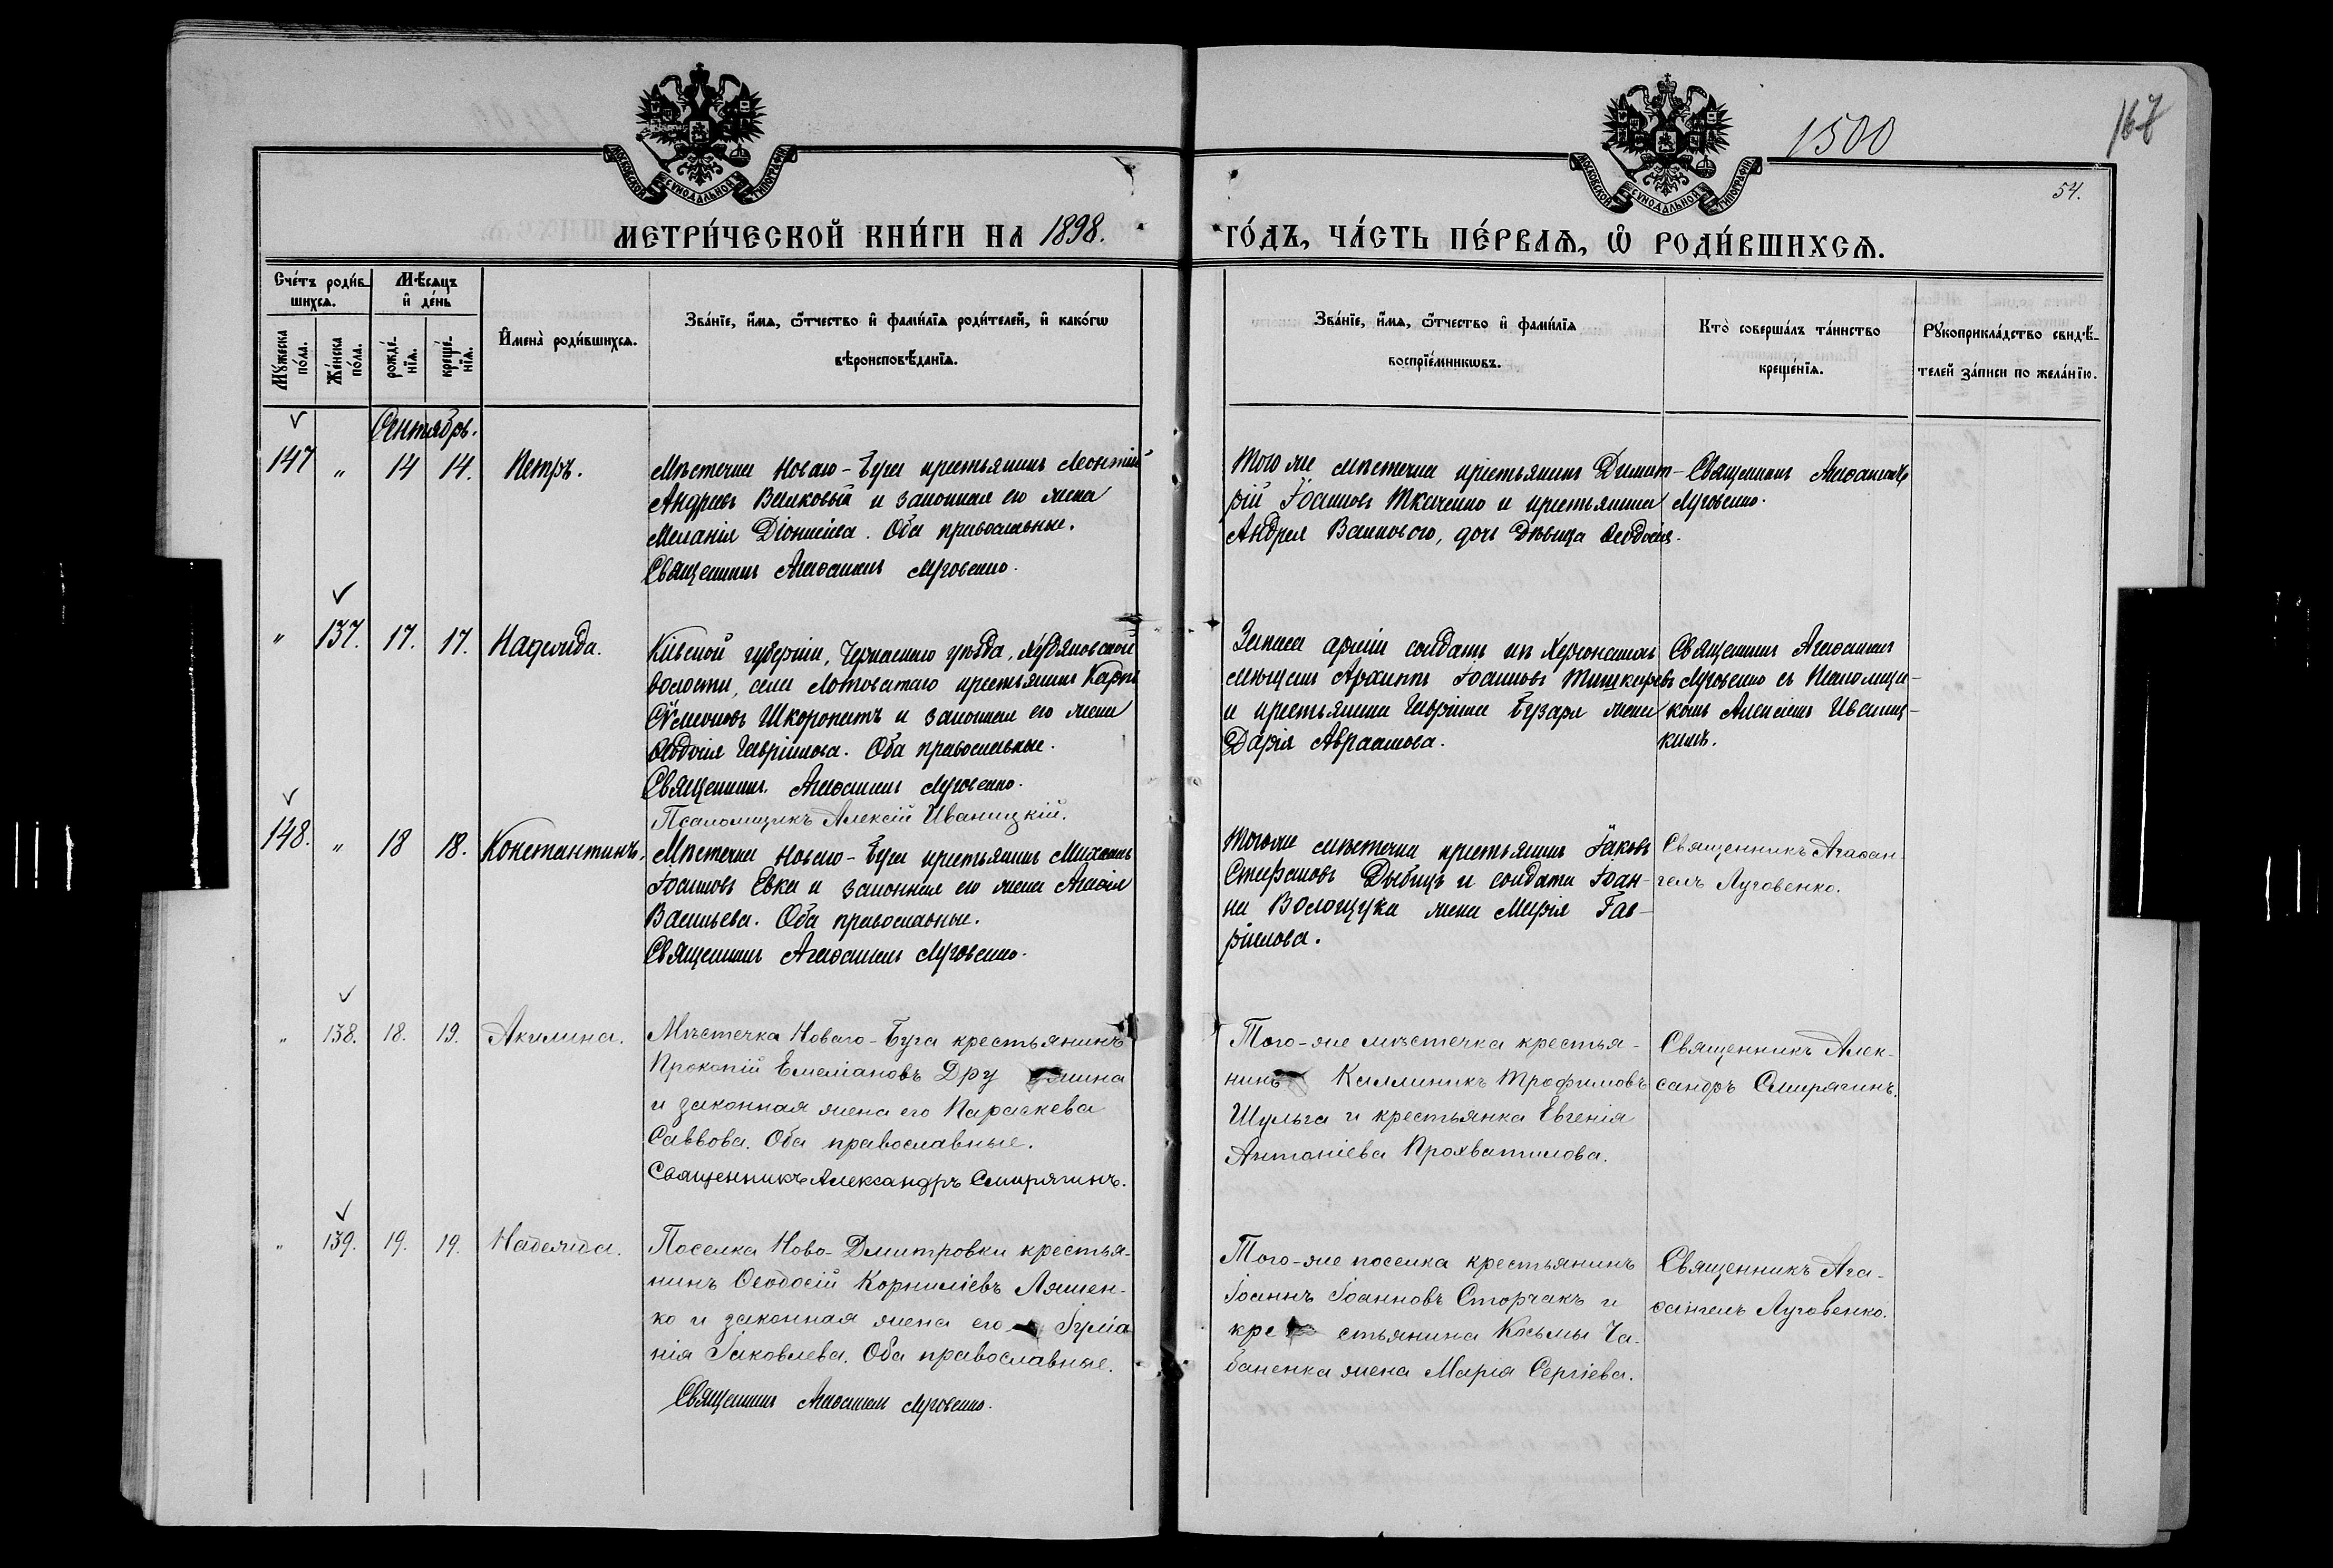 1500
167
54.
МОСКОВСКОЙ СѴНОДАЛЬНОЙ ТИПОГРАФІИ
МОСКОВСКОЙ СѴНОДАЛЬНОЙ ТИПОГРАФІИ
МЕТРИ́ЧЕСКОЙ КНИ́ГИ НА 1898.
ГО́ДЪ, ЧА́СТЬ ПЕ́РВАѦ, Ѡ РОДИ́ВШИХСѦ.
Сче́тъ роди́в-
шихсѧ.
Мꙋ́жеска по́ла.
Же́нска по́ла.
Мѣ́сѧцъ
и҆ де́нь
рожде́-
нїѧ.
креще́-
нїѧ.
И҆мена̀ роди́вшихсѧ.
Зва́нїе, и҆́мѧ, ѻ҆́тчество и҆ фами́лїѧ роди́телей, и҆ како́гѡ
вѣроисповѣ́данїѧ.
Зва́нїе, и҆́мѧ, ѻ҆́тчество и҆ фами́лїѧ
воспрїе́мникѡвъ.
Кто̀ соверша́лъ та́инство
креще́нїѧ.
Рꙋкоприкла́дство свидѣ́-
телей за́писи по жела́нїю.
Сентябрь.
147 " 14 14. Петръ.
Мѣстечка Новаго-Буга крестьянинъ Леонтій
Андреевъ Ванковый и законная его жена
Меланія Діонисіева. Оба православные.
Священникъ Агаѳангелъ Луговенко.
Того же мѣстечка крестьянинъ Димит-
рій Іоанновъ Ткаченко и крестьянина
Андрея Ванкового, дочь дѣвица Ѳеодосія.
Священникъ Агаѳангелъ
Луговенко.
" 137. 17. 17. Надежда.
Кіевской губерніи, Черкаскаго уѣзда,
волости, села Лотоватаго крестьянинъ Карпъ
Сѵмеоновъ Шкоропатъ и законная его жена
Ѳеодосія Гавріилова. Оба православные.
Священникъ Агаѳангелъ Луговенко.
Псаломщикъ Алексій Иваницкій.
Запаса арміи солдатъ изъ Херсонскихъ
мѣщанъ Архиппъ Іоанновъ
и крестьянина Гавріила Бузаря жена
Дарія Авраамова.
Священникъ Агаѳангелъ
Луговенко съ Псаломщи-
комъ Алексіемъ Иваниц-
кимъ.
148. " 18 18. Константинъ.
Мѣстечка Новаго-Буга крестьянинъ Михаилъ
Іоанновъ Евка и законная его жена Агаѳія
Васильева. Оба православные.
Священникъ Агаѳангелъ Луговенко.
Того же мѣстечка крестьянинъ Іаковъ
Стефановъ Дыбицъ и солдата Іоан-
на Волощука жена Марія Гав-
ріилова.
Священникъ Агаѳан-
гелъ Луговенко.
" 138. 18. 19. Акилина.
Мѣстечка Новаго-Буга крестьянинъ
Прокопій Емеліановъ Дру
и законная жена его Параскева
Саввова. Оба православные.
Священникъ Александръ Смирягинъ.
Того-же мѣстечка крестья-
нинъ Каллиникъ Трофимовъ
Шульга и крестьянка Евгенія
Антоніева Прохватилова.
Священникъ Алек-
сандръ Смирягинъ.
" 139. 19. 19. Надежда.
Поселка Ново-Дмитровки крестья-
нинъ Ѳеодосій Корниліевъ Ляшен-
ко и законная жена его Іуліа-
нія Іаковлева. Оба православные.
Священникъ Агаѳангелъ Луговенко.
Того-же поселка крестьянинъ
Іоаннъ Іоанновъ Сторчакъ и
кре стьянина Косьмы Ча-
баненка жена Марія Сергіева.
Священникъ Ага-
ѳангелъ Луговенко.